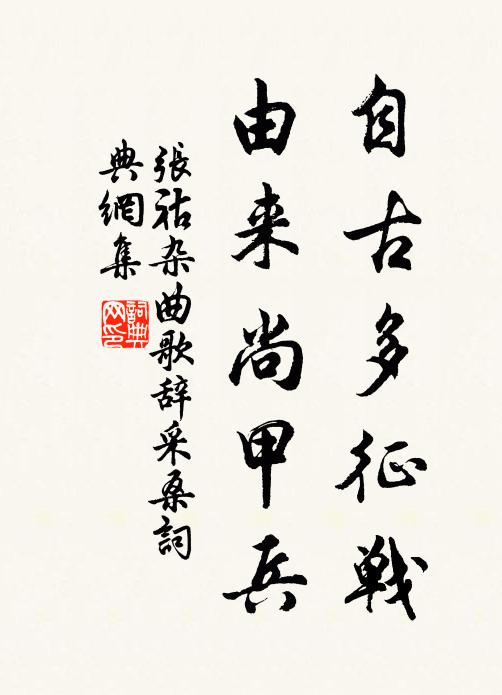 自古多征戦
由来尚甲兵
張祜杂曲歌辞采桑詞
典網集
詞典网印